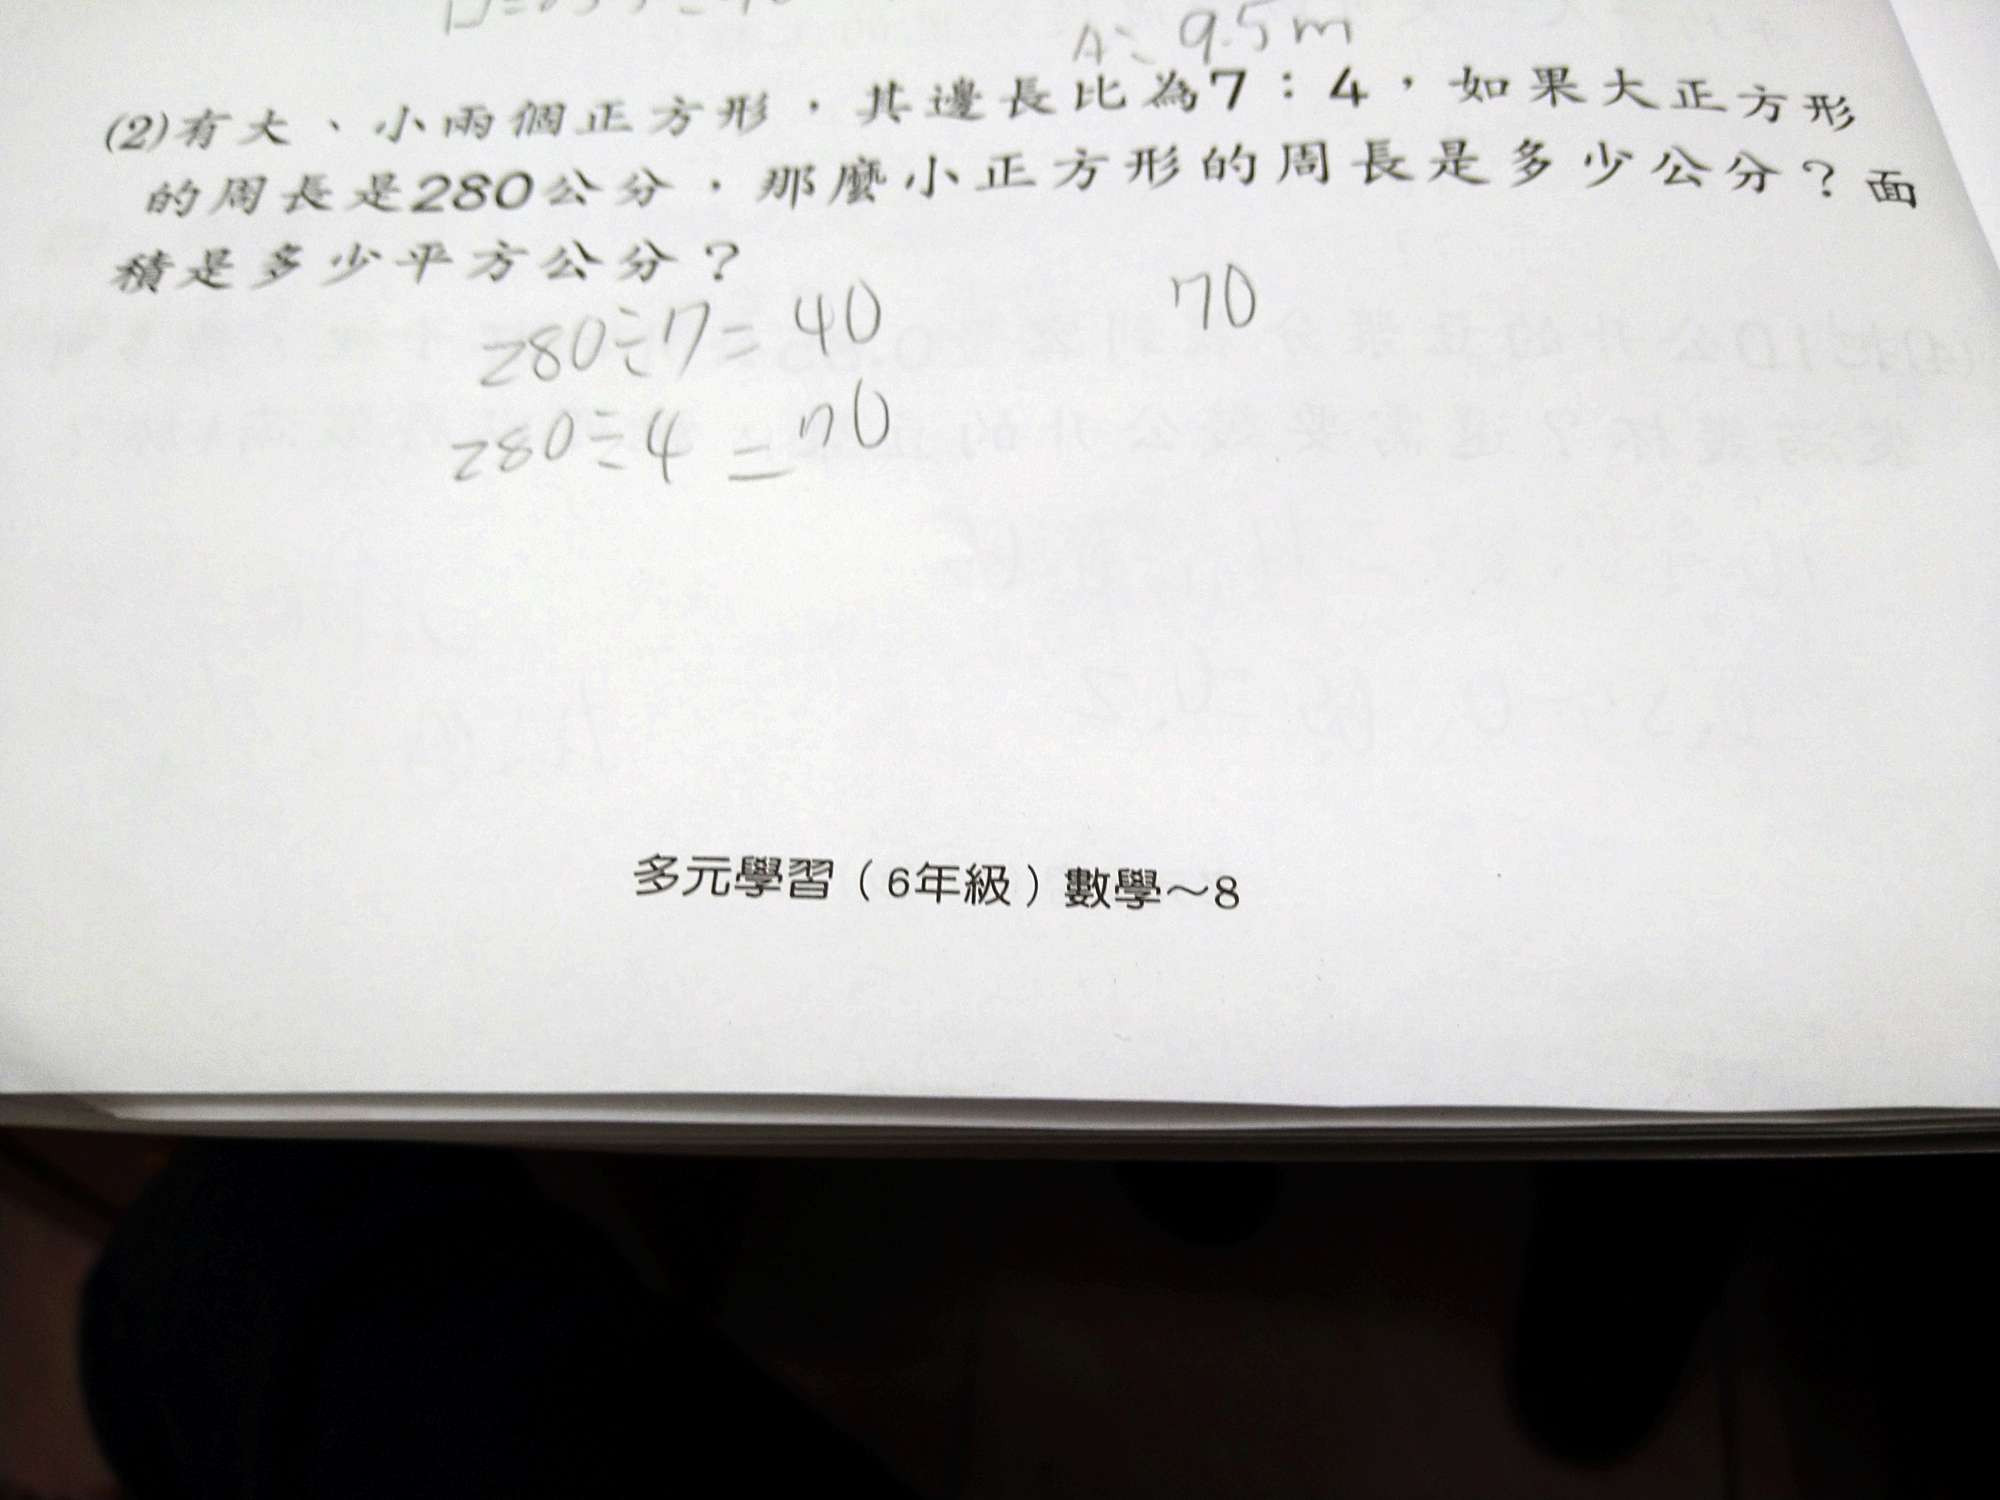 A: 9.5m
(2)有大、小兩個正方形，其邊長比為7：4，如果大正方形
的周長是280公分，那麼小正方形的周長是多少公分？面
積是多少平方公分？
280÷7=40
70
280÷4=70
多元學習（6年級）數學～8